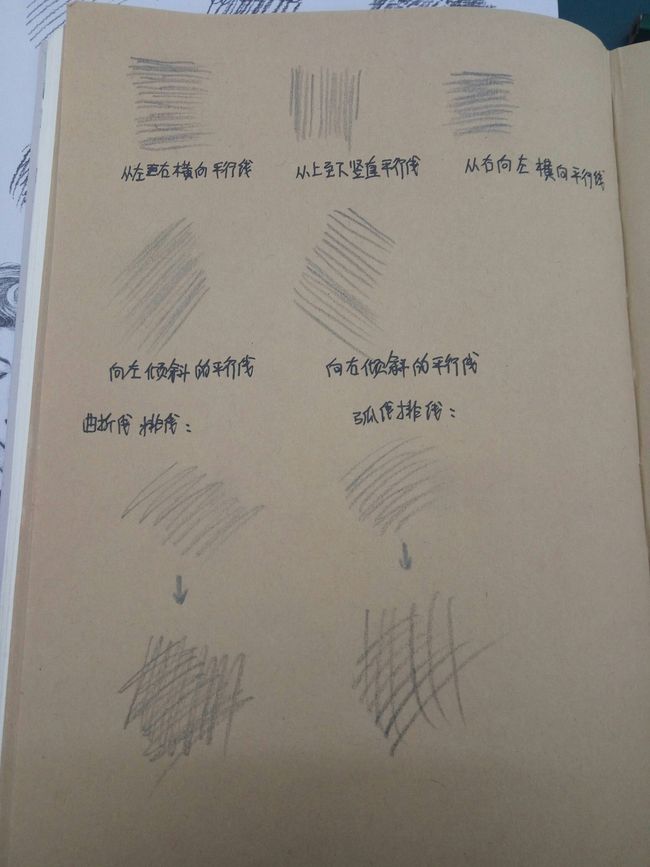 从左至右横向平行线
从上至下竖直平行线
从右向左横向平行线
向左倾斜的平行线
向右倾斜的平行线
曲折线排线：
弧线排线：